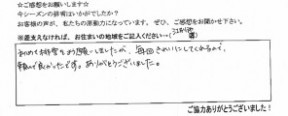 ☆ご感想をお願いします☆
今シーズンの俳明はいかがでしたか?
お客様の声が、私たちの原動力になっています。ぜひ、ご感想をお聞かせ下さい。
※差支えなければ、お住まいの地域をご記入ください→(
初めて
お願いしましたが、毎回きれいにしてくれるので、
頼んで良かったです。ありがとうございました。
ご協力ありがとうございました!